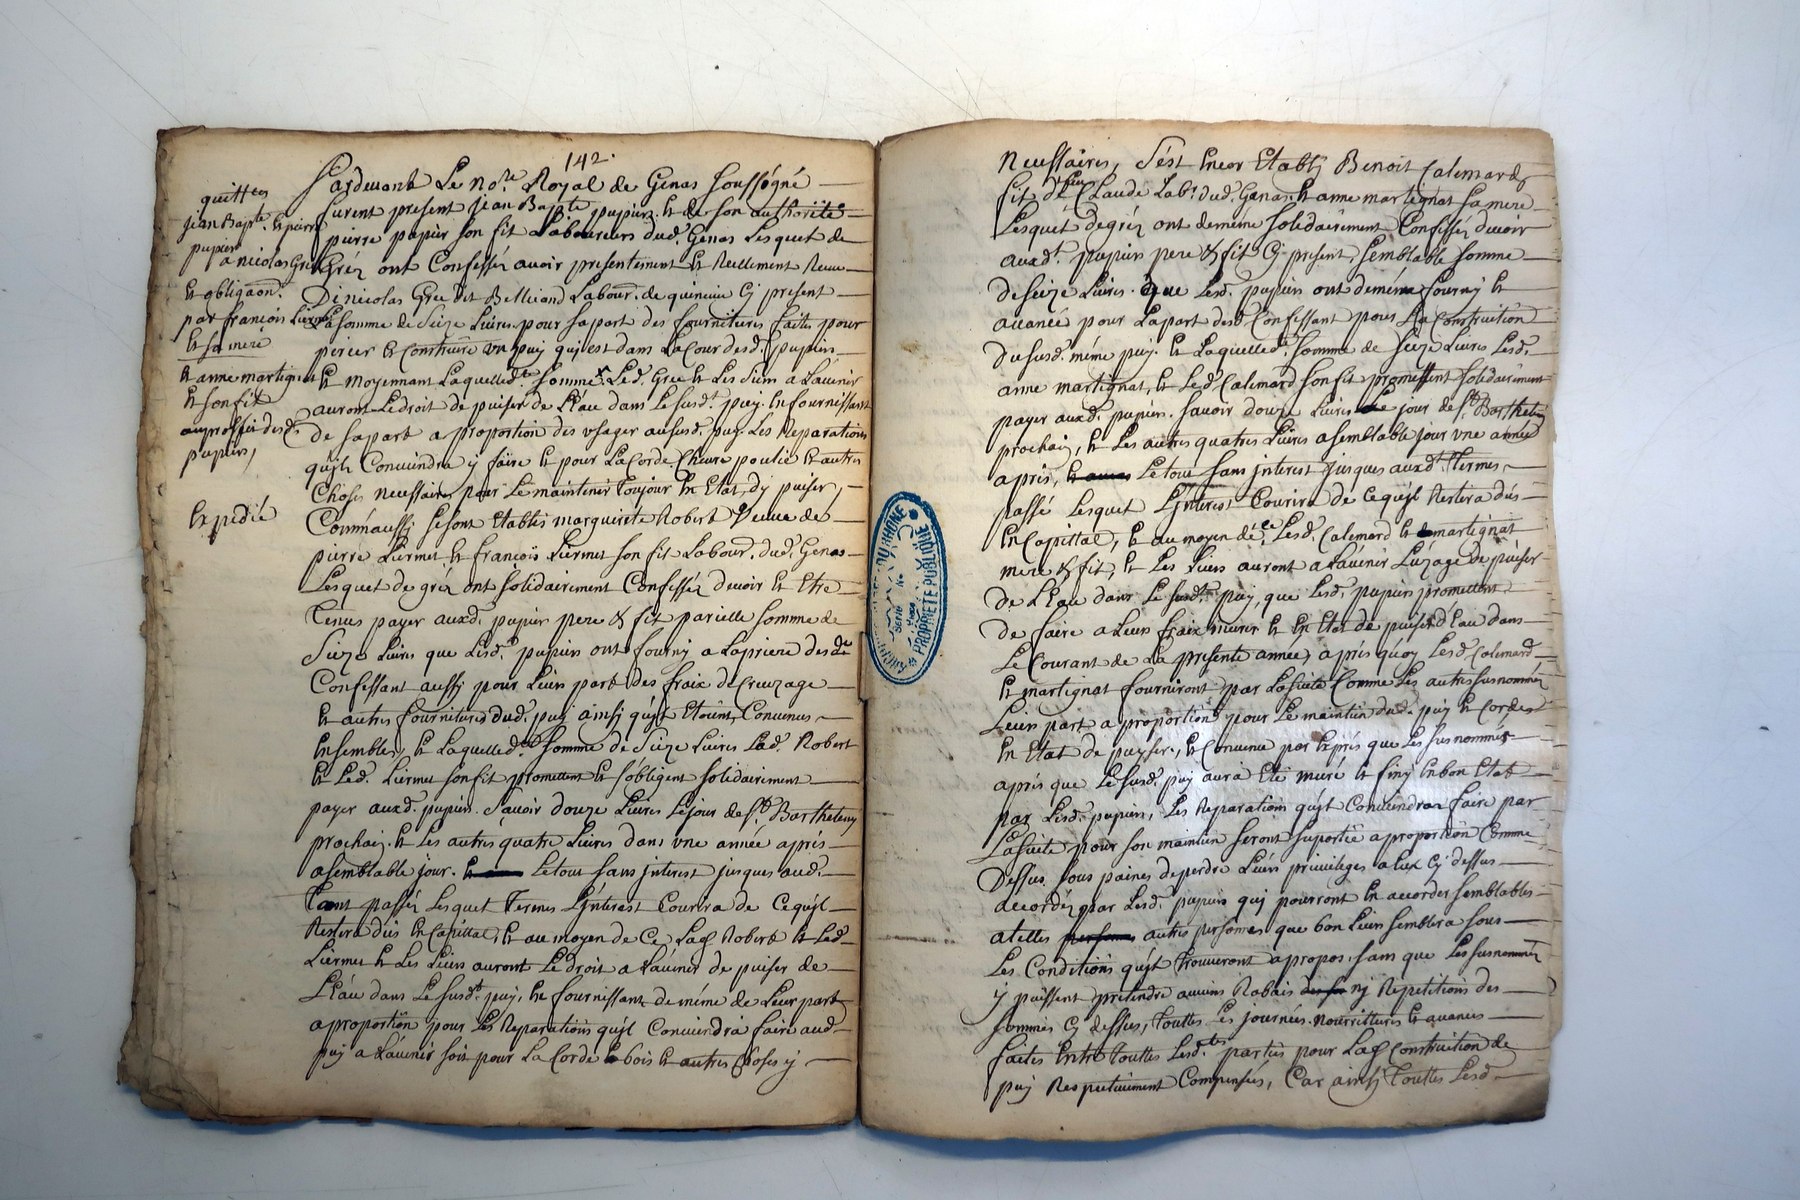 142.
quittces
jean Bapte. et pierre
papier
a nicolas Gree
et obligaon.
par françois Liermet
et sa mere
et anne martignat
et son fix
au proffit desd.
papiers,
Expedié
Pardevant Le nore. Royal de Genas soussigné
furent present jean Bapte papier. et de son authorité
pierre papier son fit Laboureurs dud. Genas Lesquet de
Gréz ont Confessés avoir presentement et Reellement Receu
De nicolas Gree dit Belliand Labour. de quincieu Cy present
La somme de Seize Livres pour sa part des fournitures faites pour
percer et Construire un puij quj est dans La Cour desd. papiers
et moyennant Laquelled. somme Led. Gree et Les Siens a L'avenir
auront Le droit de puiser de L'eau dans Le susd. puij. en fournissant
de sa part a proportion des usager au susd. puij. Les Reparations
qujl Conviendra y faire et pour La Corde, Chevre poulie et autres
Choses necessaires pour Le maintenir Toujour en Etat, dy puiser,
Comme aussy se sont Etablis marguerite Robert Veuve de
pierre Liermet et françois Liermet son fit Labour. dud. Genas
Lesquet de gréz ont solidairement Confessés devoir et Etre
Tenus payer auxd. papier pere & fit pareille somme de
Seize Livres que Lesd. papiers ont fourny a La priere desd.
Confessant aussy pour Leurs part des fraix de Creuzage
et autres fournitures dud. puij ainsy qujt Etoient Convenus
Ensembles, et Laquelled. somme de Seize Livres Lad. Robert
et Led. Liermet son fit promettent et s'obligent solidairement
payer auxd. papiers. Savoir douze Livres Le jour de St. Barthelemy
prochain. et Les autres quatre Livres dans une année aprés
a semblable jour. Le tout sans jnterest jusques aud.
Tant passés Lesquet Termes L'jnterest Courira de Ce qujl
Restera düs en Capittal, et au moyen de Ce Lad. Robert et Led.
Liermet et Les Siens auront Le droit a L'avenir de puiser de
L'Eau dans Le susd. puij, en fournissant de méme de Leur part
a proportion pour Les Reparations qujl Conviendra faire aud.
puij a L'avenir soit pour La Corde bois et autres Choses y
necessaires, S'ést encor Etably Benoit Calemard
fit de feu Claude Labr. dud. Genas. et anne martignat sa mere
Lesquét de gréz ont de méme solidairement Confessés devoir
auxd. papiers pere & fit Cy present, semblable somme
de seize Livres. que Lesd. papiers ont de méme fourny et
avancé pour La part desd. Confessant pour La Construition
du susd. méme puij. et Laquelled. somme de seize Livres Lesd.
anne martignat, et Led. Calemard son fit promettent solidairement
payer auxd. papiers. savoir douze Livres Le jour de St. Barthelemy
prochain, et Les autres quatres Livres a semblable jour une année
aprés, Le tout sans jnterest jusques auxd. Termes
passé Lesquet L'jnterest Courira de Ce qujl Restera düs
en Capittal, et au moyen de ce Lesd. Calemard et martignat
mere & fit, et Les Siens auront a L'avenir L'uzage de puiser
De L'Eau dans Le susd. puij, que Lesd. papiers promettent
de faire a Leurs fraix murer et en Etat de puiser d'Eau dans
Le Courant de La presente année, aprés quoy Lesd. Calemard
et martignat fourniront par La suite Comme Les autres susnommés
Leurs part a proportion pour Le maintien dud. puij et Cordes
en Etat de puyser, et Convenu par Exprés que Les susnommés
aprés que Le susd. puij aura Eté muré et finy en bon Etat
par Lesd. papiers, Les Reparations qujt Conviendra faire par
La suite pour son maintien seront suportée a proportion Comme
Dessus. sous paines de perdre Leurs privileges a Eux Cy dessus
accordés par Lesd. papiers quj pourront en accorder semblables
a telles autres persones que bon Leurs semblera sous
Les Conditions qujt trouveront a propos. sans que Les susnommés
y puissent pretendre aucuns Rabais ny Repetitions des
sommes Cy dessus, Touttes Les journées. nourrittures et avances
faites Entre Touttes Lesd. parties pour Lad. Construition de
puij Respectivement Compensées, Car ainsy Touttes Lesd.
PROPRIÉTÉ PUBLIQUE